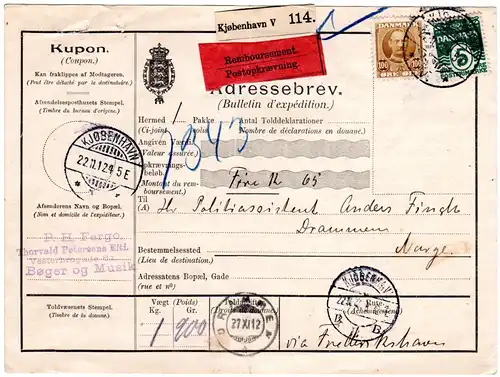 Kjøbenhavn V 114.
Remboursement.
Postopkrævning.
DANMARK
100 100
ØRE
5
Kupon.
(Coupon.)
Kan fraklippes af Modtageren.
(Peut être détaché par le destinataire.)
Afsendelsesposthusets Stempel.
(Timbre du bureau d'origine.)
KJØBENHAVN
22.11.12 4-5 E
Afsenderens Navn og Bopæl.
(Nom et domicile de l'expéditeur.)
P. H. Fergo.
Thorvald Petersens Eftf.
Vesterbrogade
Bøger og Musik
Toldvæsenets Stempel.
(Timbre de la douane.)
Adressebrev.
(Bulletin d'expédition.)
Hermed 1 Pakke Antal Tolddeklarationer
(Ci-joint colis) Nombre de déclarations en douane.)
343
Angiven Værdi
(Valeur assurée.)
Montant du remboursement.)
Fire Kr 65
Til Hr Politiassistent Anders Fingh
(A)
Drammen
Bestemmelsessted Norge.
(Lieu de destination.)
Adressatens Bopæl, Gade
(rue et nº)
Vægt (Poids)
Kg. Gr.
1 900
DRAMMEN
27 XI 12
KJØBENHAVN
Rute
(Acheminement)
via Frederikshavn